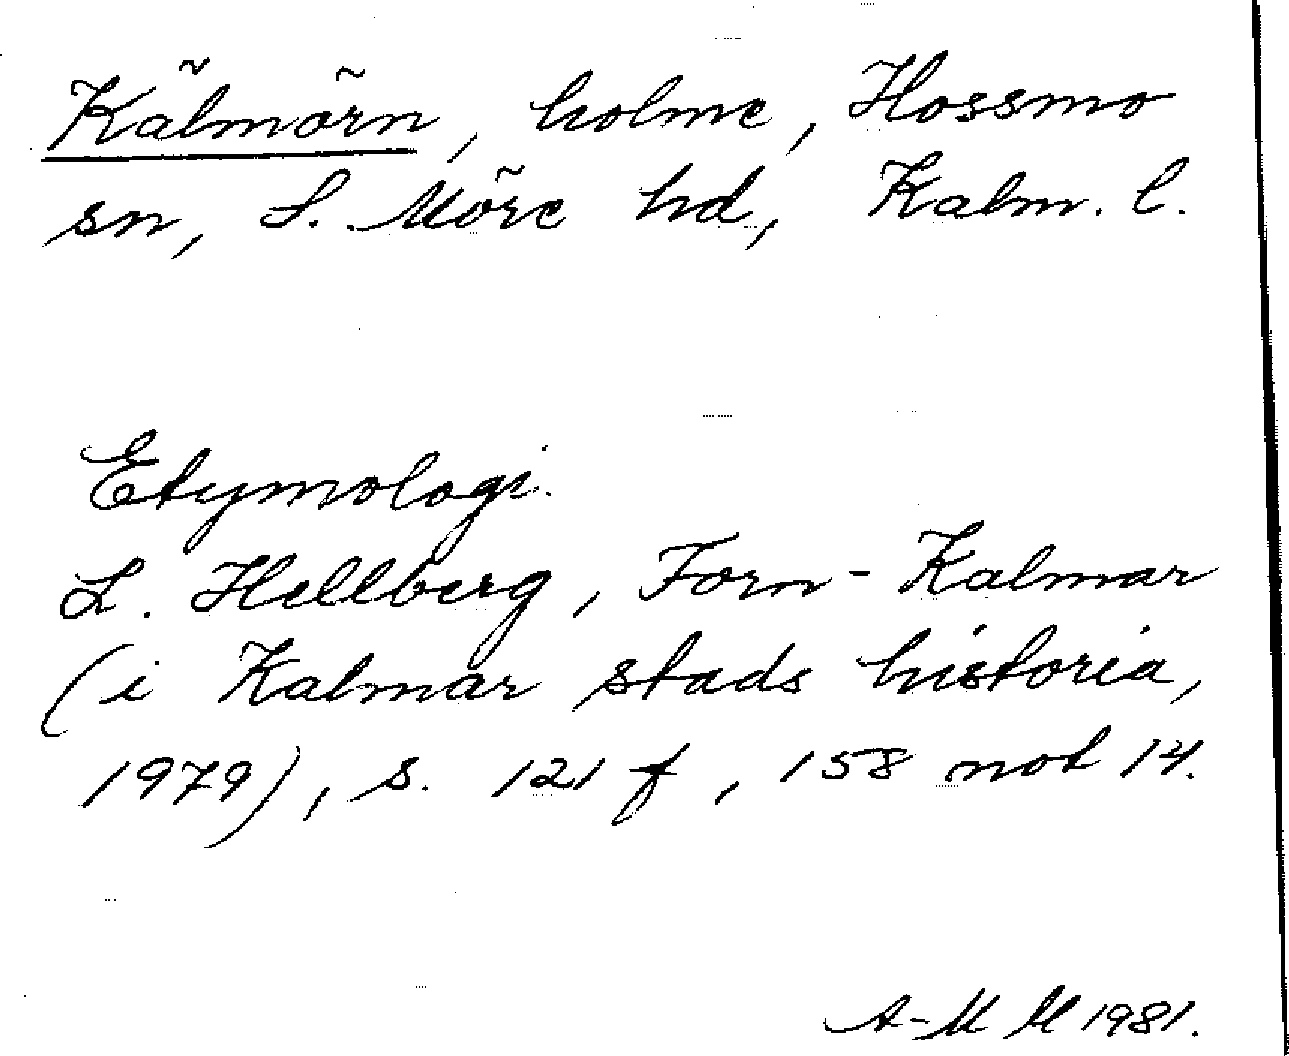 Kälmörn, holme, Hossmo
sn, S. Möre hd, Kalm. l.
Etymologi.
L. Hellberg, Forn-Kalmar
(i Kalmar stads historia,
1979), s. 121 f, 158 not 14.
A-M M 1981.